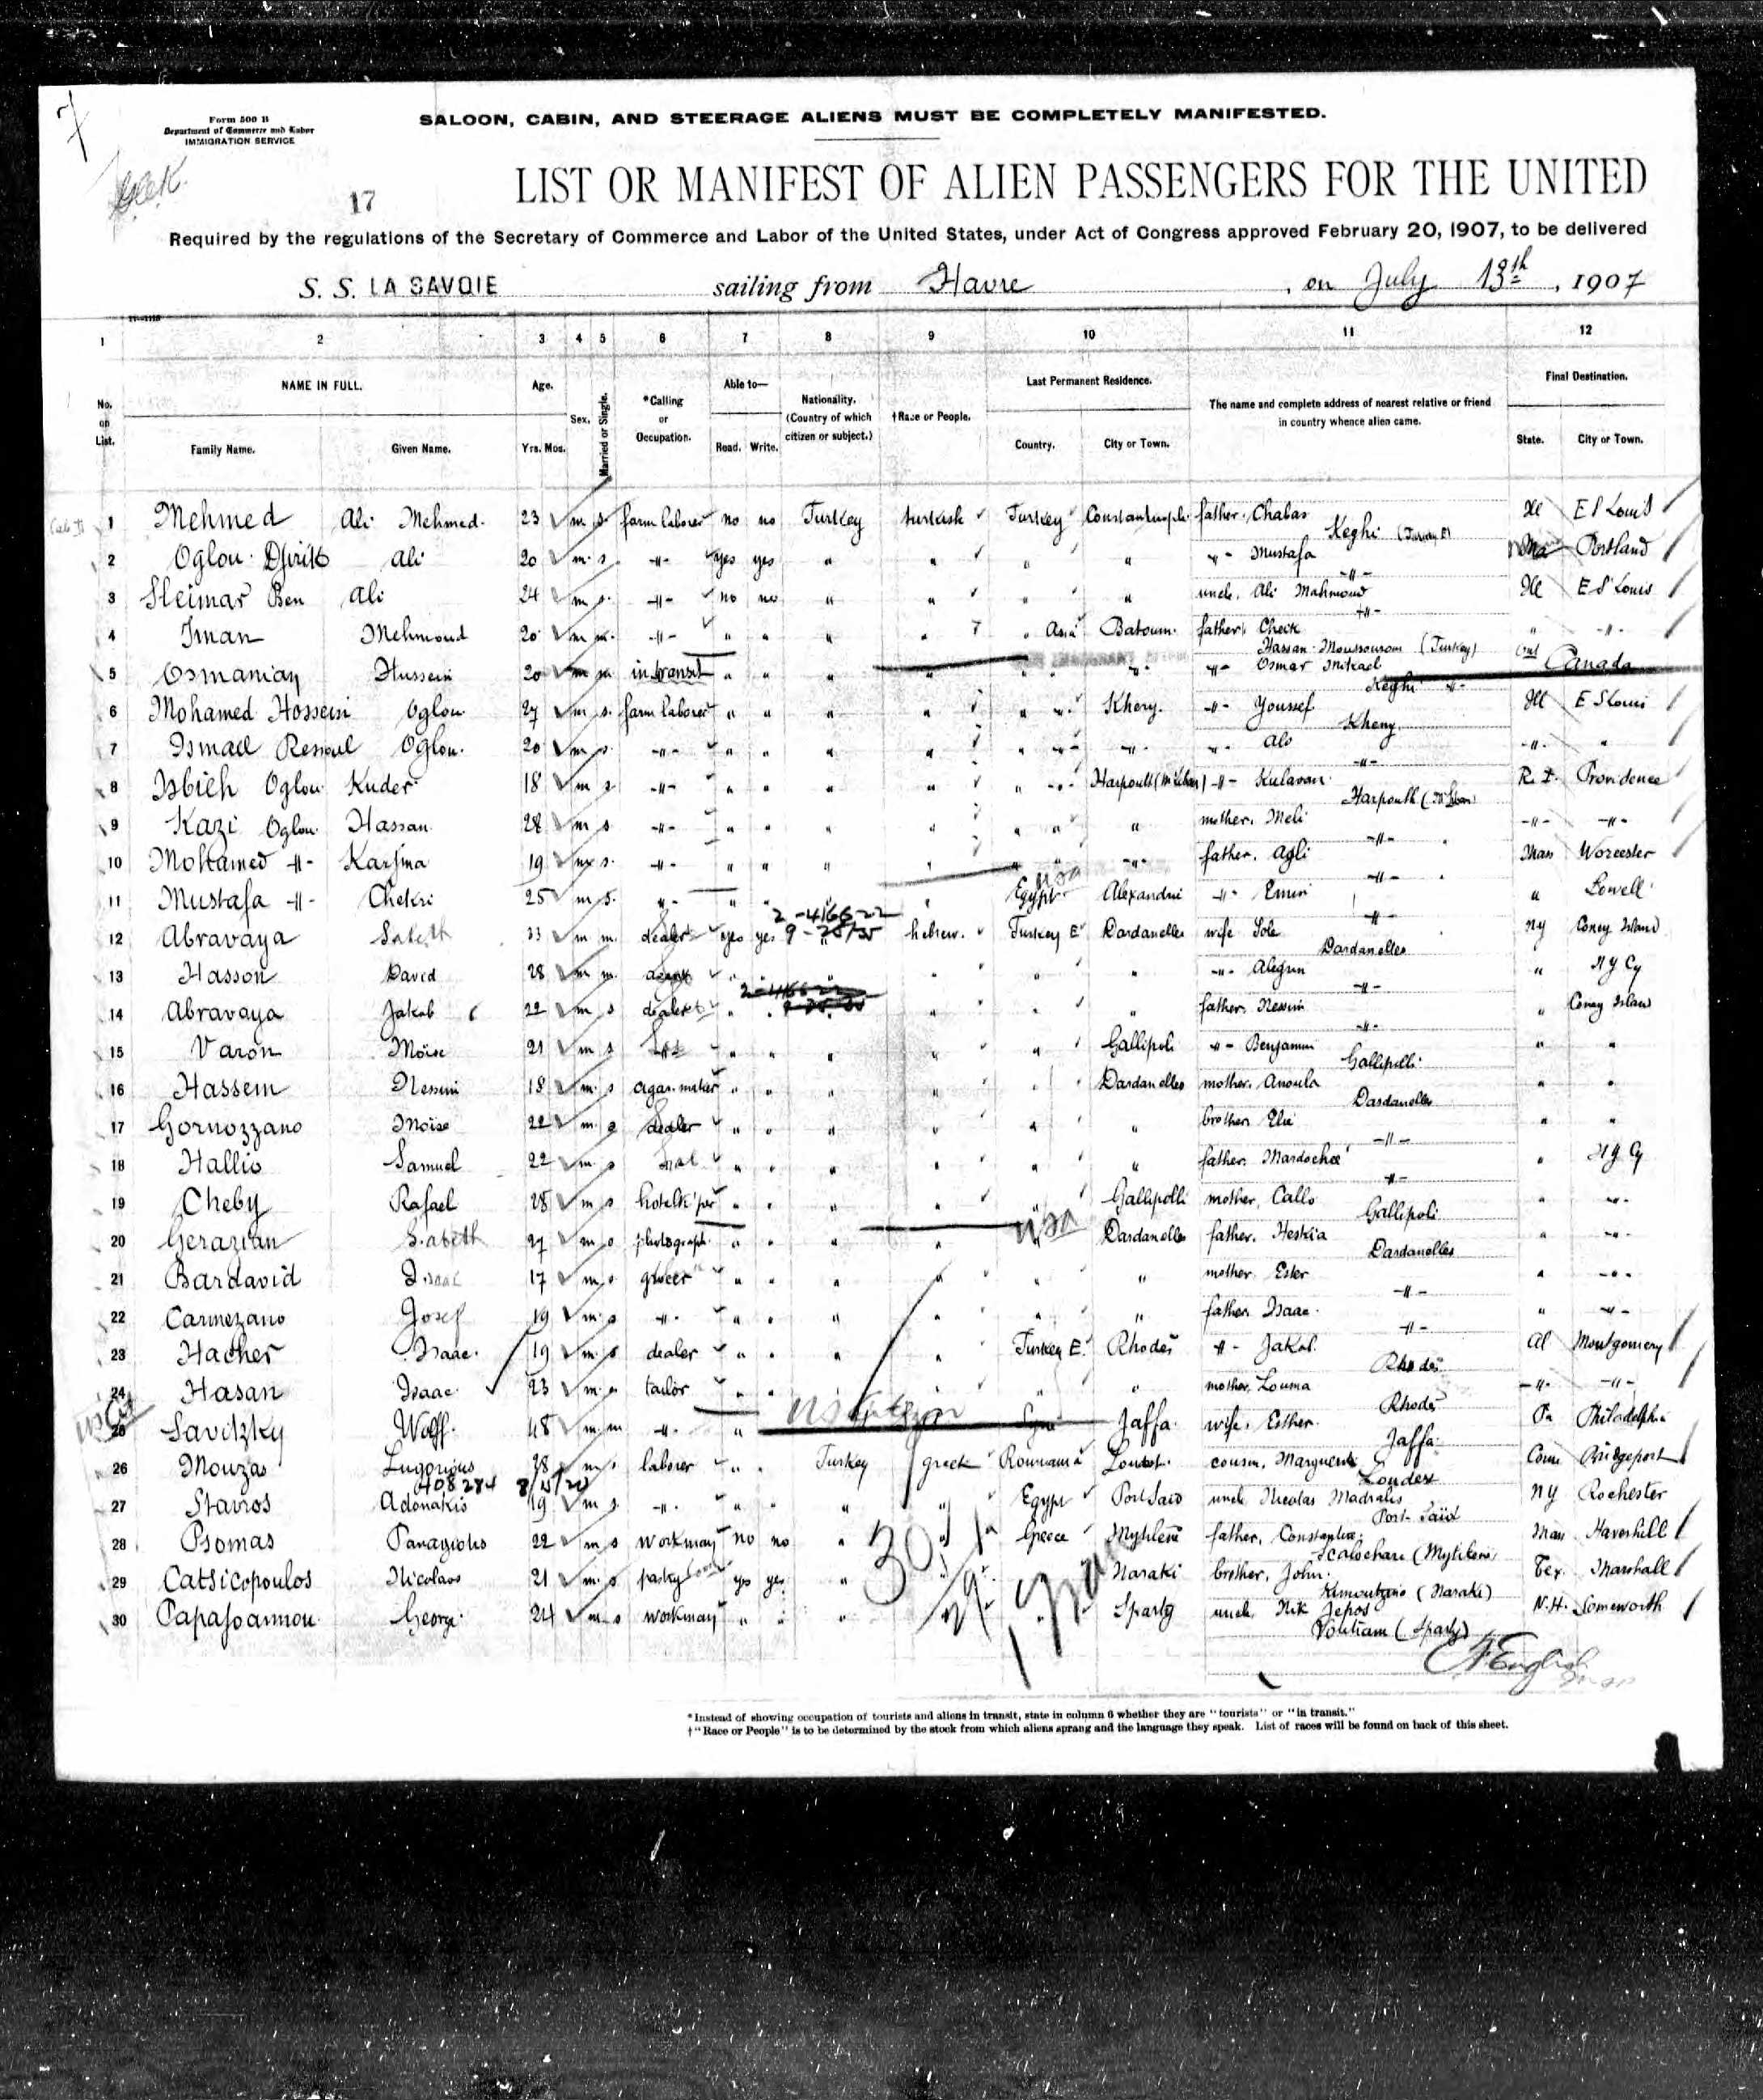 7
Form 500 B
Department of Commerce and Labor
IMMIGRATION SERVICE
SALOON, CABIN, AND STEERAGE ALIENS MUST BE COMPLETELY MANIFESTED.
17
LIST OR MANIFEST OF ALIEN PASSENGERS FOR THE UNITED
Required by the regulations of the Secretary of Commerce and Labor of the United States, under Act of Congress approved February 20, 1907, to be delivered
S. S. LA SAVOIE sailing from Havre, on July 13th, 1907
1 2 3 4 5 6 7 8 9 10 11 12
No. on List. NAME IN FULL. Family Name. Given Name. Age. Yrs. Mos. Sex. Married or Single. *Calling or Occupation. Able to— Read. Write. Nationality. (Country of which citizen or subject.) †Race or People. Last Permanent Residence. Country. City or Town. The name and complete address of nearest relative or friend in country whence alien came. Final Destination. State. City or Town.
1 Mehmed Ali Mehmed. 23 m s. farm laborer no no Turkey turkish Turkey Constantinople father. Chabas Keghi Ill E St Louis
2 Oglou Ali 20 m. s. -"- yes yes " " " " -"- Mustafa -"- Portland
3 Sleiman Ben Ali 24 m s. -"- no no " " " " uncle. Ali Mahmoud -"- Ill E St Louis
4 Iman Mehmoud 20 m m. -"- " " " " " Asia Batoum. father, Check Hassan (Turkey) " -"-
5 Osmanian Hussein 20 m m in transit " " " " -"- Osmar Keghi -"- Canada
6 Mohamed Hossein Oglou 27 m s. farm laborer " " " " " -"- Khery. -"- Youssef Kheny Ill E St Louis
7 Ismael Resoul Oglou. 20 m s. -"- " " " " " -"- -"- -"- Alo -"- -"- "
8 Isbieh Oglou Kuder 18 m s -"- " " " " " -"- Harpouth -"- Kulavan Harpouth R. I. Providence
9 Kazi Oglou Hassan 28 m s. -"- " " " " " " " mother. Meli -"- -"- -"-
10 Mohamed -"- Karsma 19 m s. -"- " " " " -"- father. Agli -"- Mass Worcester
11 Mustafa -"- Chekri 25 m s. -"- " " " Egypt Alexandrie -"- Emin -"- " Lowell
2-4166-22
12 Abravaya 33 m m. dealer yes yes " hebrew. Turkey E Dardanelles wife Sole Dardanelles NY Coney Island
13 Hasson David 28 m m. " " " " " " -"- Alegun -"- " N Y Cy
14 Abravaya Jakob 22 m s dealer " " " " " father. Nessim -"- " Coney Island
15 Varon Moïse 21 m s " " " " " Gallipoli -"- Benjamin Gallipolli " "
16 Hassem Nessim 18 m. s " " " " " Dardanelles mother. Anoula Dardanelles " "
17 Gornozzano Moïse 22 m s dealer " " " " " " brother Elie -"- " "
18 Hallio Samuel 22 m. s " " " " " " father. Mardochée -"- " N Y Cy
19 Cheby Rafael 28 m s " " " " Gallipolli mother, Callo Gallipoli " -"-
20 Gerazian 27 m s photograph. " " " " Dardanelles father. Heskia Dardanelles " -"-
21 Bardavid Isaac 17 m s grocer " " " " " " mother. Ester -"- " -"-
22 Carmezano Josef 19 m. s -"- " " " " " " father. Isaac. -"- " -"-
23 Hacher Isaac. 19 m. s dealer " " " " Turkey E. Rhodes -"- Jakob. Rhodes Al Montgomery
24 Hasan Isaac 23 m. s tailor " " " " " mother, Louma Rhodes -"- -"-
25 Savitzky Wolff. 48 m. m -"- " Jaffa. wife, Esther. Jaffa. Pa Philadelphia
26 Mouzas 28 m s laborer " " Turkey greek Roumania cousin, Marguerite Conn Bridgeport
408284 8/11/20
27 Stavros Adonakis 19 m s. -"- " " " " Egypt Port Said uncle Nicolas Port-Saïd NY Rochester
28 Psomas Panagiotis 22 m s workman no no " " Greece Mytilene father, Constantin. (Mytilene) Mass Haverhill
29 Catsicopoulos Nicolaos 21 m. s yes yes " " Naraki brother, John. (Naraki) Tex. Marshall
30 Papajoannou George. 24 m s workman " " " Sparty uncle, Nik (Sparty) N.H. Someworth
*Instead of showing occupation of tourists and aliens in transit, state in column 6 whether they are "tourists" or "in transit."
†"Race or People" is to be determined by the stock from which aliens sprang and the language they speak. List of races will be found on back of this sheet.